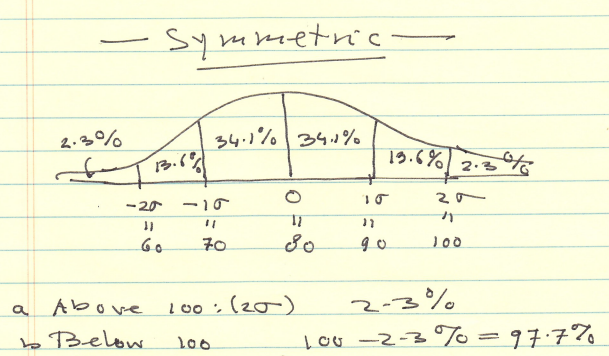 — Symmetric —
2.3% 13.6% 34.1% 34.1% 13.6% 2.3%
-2σ -1σ 0 1σ 2σ
" " " " "
60 70 80 90 100
a Above 100: (2σ) 2-3%
b Below 100 100 - 2-3% = 97.7%